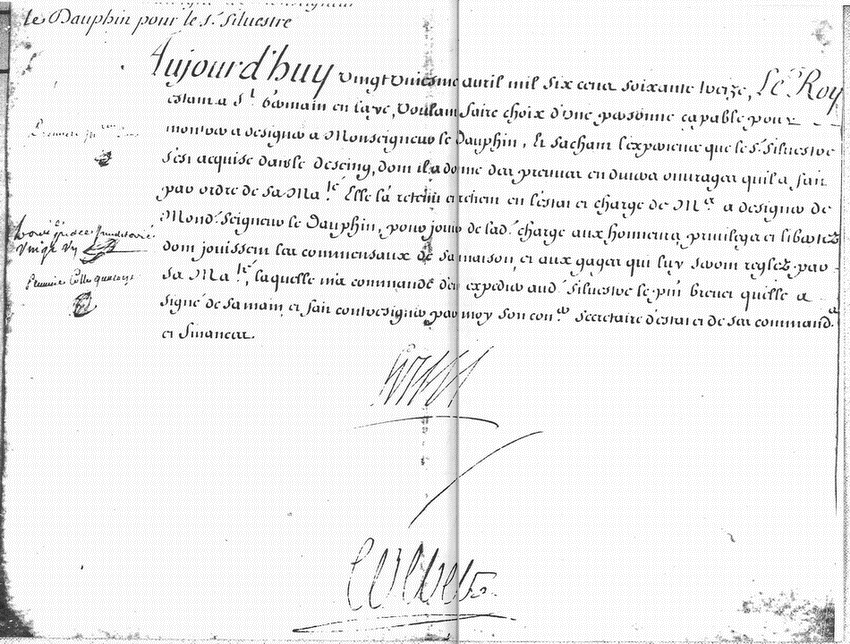 le Dauphin pour le Sr. Silvestre
Aujourd'huy vingt huiesme avril mil six cens soixante treize, Le Roy
estant a St. Germain en Laye, voulant faire choix d'une personne capable pour
monstrer a designer a Monseigneur le Dauphin, Et sachant l'experience que le Sr. Silvestre
s'est acquise dans le desseing, dont il a donné des preuves en divers ouvrages qu'il a fait
par ordre de sa Mate. Elle l'a retenu et retient en l'estat et charge de Me. a designer de
Mond. Seigneur le Dauphin, pour jouir de lad. charge aux honneurs privileges et libertez
dont jouissent les commensaux de sa maison, et aux gages qui luy seront reglez par
sa Mate, laquelle m'a commandé d'en expedier aud. Silvestre le pnt brevet qu'elle a
signé de sa main, et fait contresigner par moy son conr. secretaire d'estat et de ses commands.
et finances.
Louis
Colbert